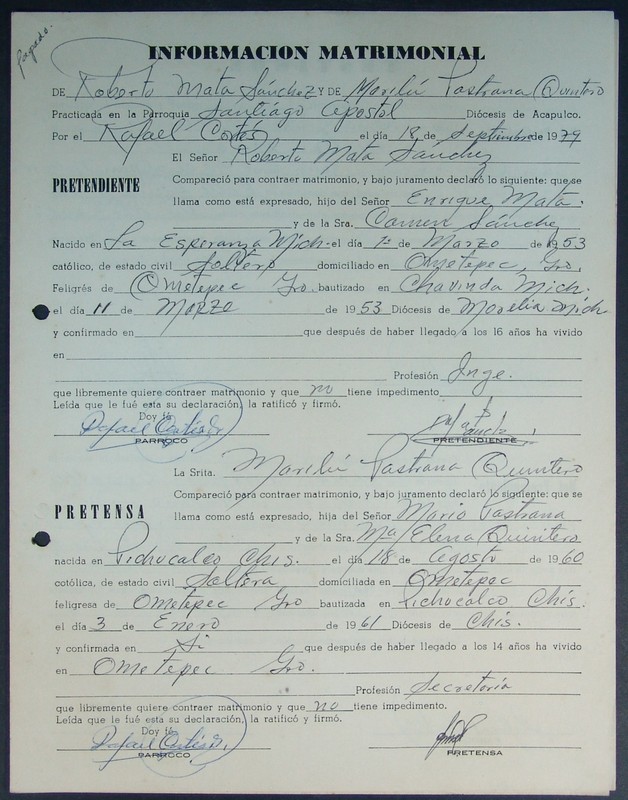 pagado.
INFORMACION MATRIMONIAL
DE Roberto Mata Sánchez Y DE Marilú Pastrana Quintero
Practicada en la Parroquia Santiago Apostol Diócesis de Acapulco.
Por el Rafael Cortés el día 18 de Septiembre de 1979
El Señor Roberto Mata Sánchez
PRETENDIENTE
Compareció para contraer matrimonio, y bajo juramento declaró lo siguiente: que se
llama como está expresado, hijo del Señor Enrique Mata.
y de la Sra. Carmen Sánchez
Nacido en La Esperanza Mich. el día 1º de Marzo de 1953
católico, de estado civil Soltero domiciliado en Ometepec, Gro,
Feligrés de Ometepec Gro. bautizado en Chavinda Mich.
el día 11 de Marzo de 1953 Diócesis de Morelia Mich
y confirmado en que después de haber llegado a los 16 años ha vivido
en
Profesión Inge.
que libremente quiere contraer matrimonio y que no tiene impedimento.
Leída que le fué esta su declaración, la ratificó y firmó.
Doy fé
Rafael
PARROCO PRETENDIENTE
La Srita. Marilú Pastrana Quintero
PRETENSA
Compareció para contraer matrimonio, y bajo juramento declaró lo siguiente: que se
llama como está expresado, hija del Señor Mario Pastrana
y de la Sra. Mª Elena Quintero
nacida en Pichucalco Chis. el día 18 de Agosto de 1960
cotólica, de estado civil Soltera domiciliada en Ometepec
feligresa de Ometepec Gro bautizada en Pichucalco Chis.
el día 3 de Enero de 1961 Diócesis de Chis.
y confirmada en Si que después de haber llegado a los 14 años ha vivido
en Ometepec Gro.
Profesión Secretaria
que libremente quiere contraer matrimonio y que no tiene impedimento.
Leída que le fué esta su declaración, la ratificó y firmó.
Doy fé
Rafael
PARROCO PRETENSA